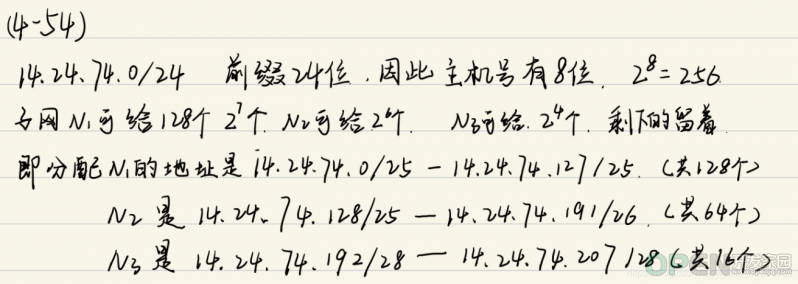 (4-54)
14.24.74.0/24 前缀24位,因此主机号有8位, 2⁸=256
子网N₁可给128个 2⁷个. N₂可给2⁶个. N₃可给 2⁴个. 剩下的留着.
即分配N₁的地址是 14.24.74.0/25 — 14.24.74.127/25. (共128个)
N₂是 14.24.74.128/25 — 14.24.74.191/26. (共64个)
N₃是 14.24.74.192/28 — 14.24.74.207/28 (共16个)